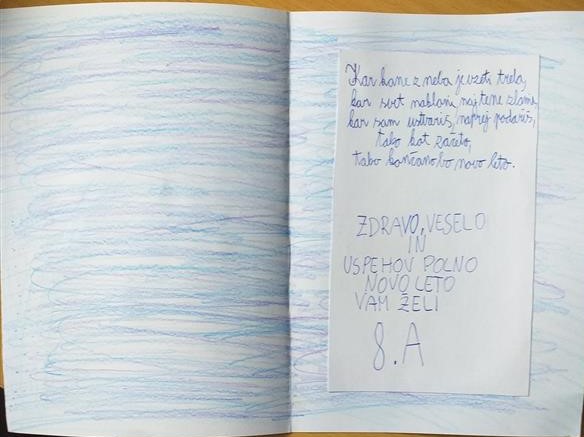 Kar kane z neba je vzeti treba,
kar svet nakloni, naj te ne zlomi,
kar sam ustvariš, naprej podariš,
tako kot začeto,
tako končano bo novo leto.
ZDRAVO, VESELO
IN
USPEHOV POLNO
NOVO LETO
VAM ŽELI
8.A